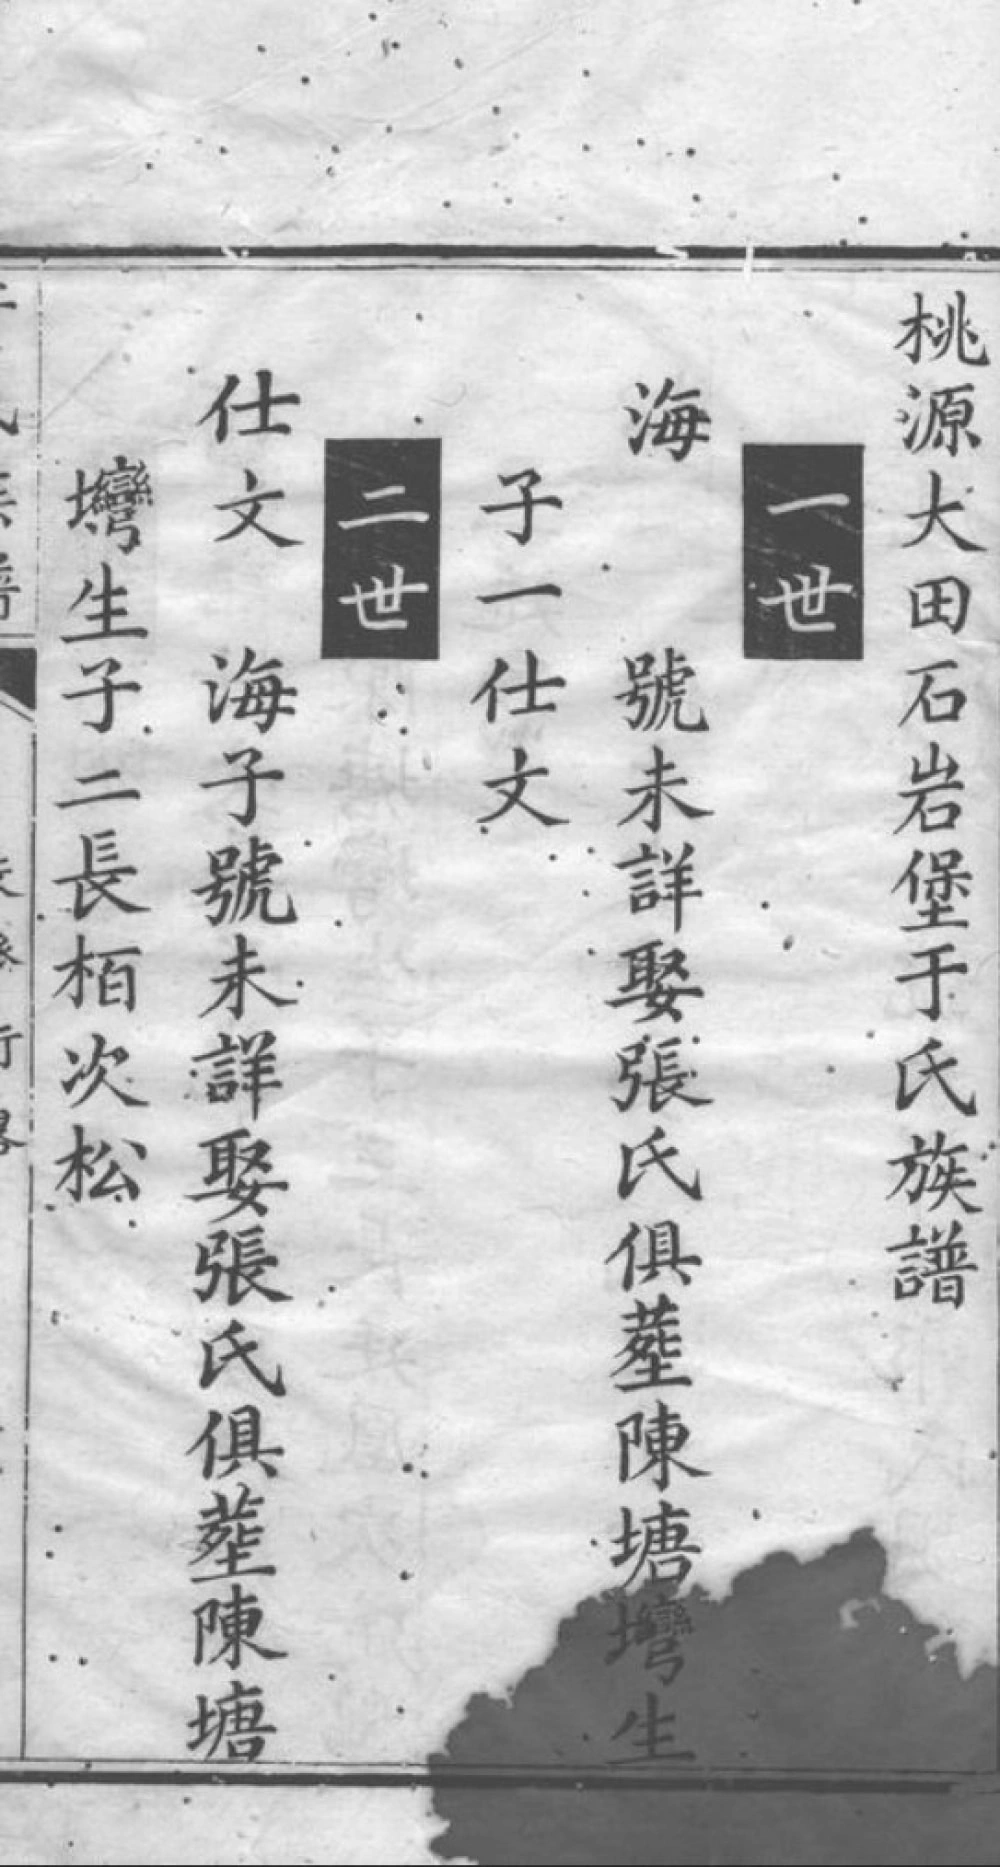 桃源大田石岩堡于氏族譜
一世
海 號未詳娶張氏俱塟陳塘壪生
子一仕文
二世
仕文 海子號未詳娶張氏俱塟陳塘
壪生子二長栢次松